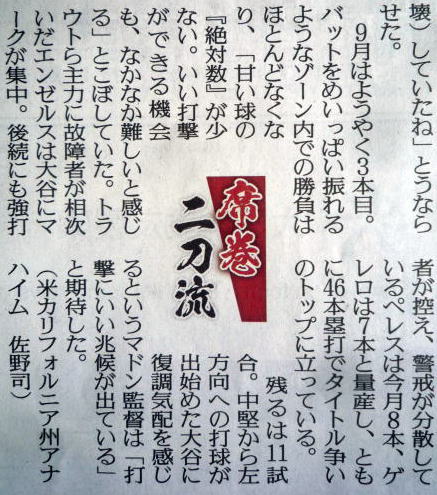 壊)していたね」とうなら
せた。
　9月はようやく3本目。
バットをめいっぱい振れる
ようなゾーン内での勝負は
ほとんどなくな
り、「甘い球の
『絶対数』が少
ない。いい打撃
ができる機会
も、なかなか難しいと感じ
る」とこぼしていた。トラ
ウトら主力に故障者が相次
いだエンゼルスは大谷にマ
ークが集中。後続にも強打
席巻
二刀流
者が控え、警戒が分散して
いるペレスは今月8本、ゲ
レロは7本と量産し、とも
に46本塁打でタイトル争い
のトップに立っている。
　残るは11試
合。中堅から左
方向への打球が
出始めた大谷に
復調気配を感じ
るというマドン監督は「打
撃にいい兆候が出ている」
と期待した。
（米カリフォルニア州アナ
ハイム　佐野司）